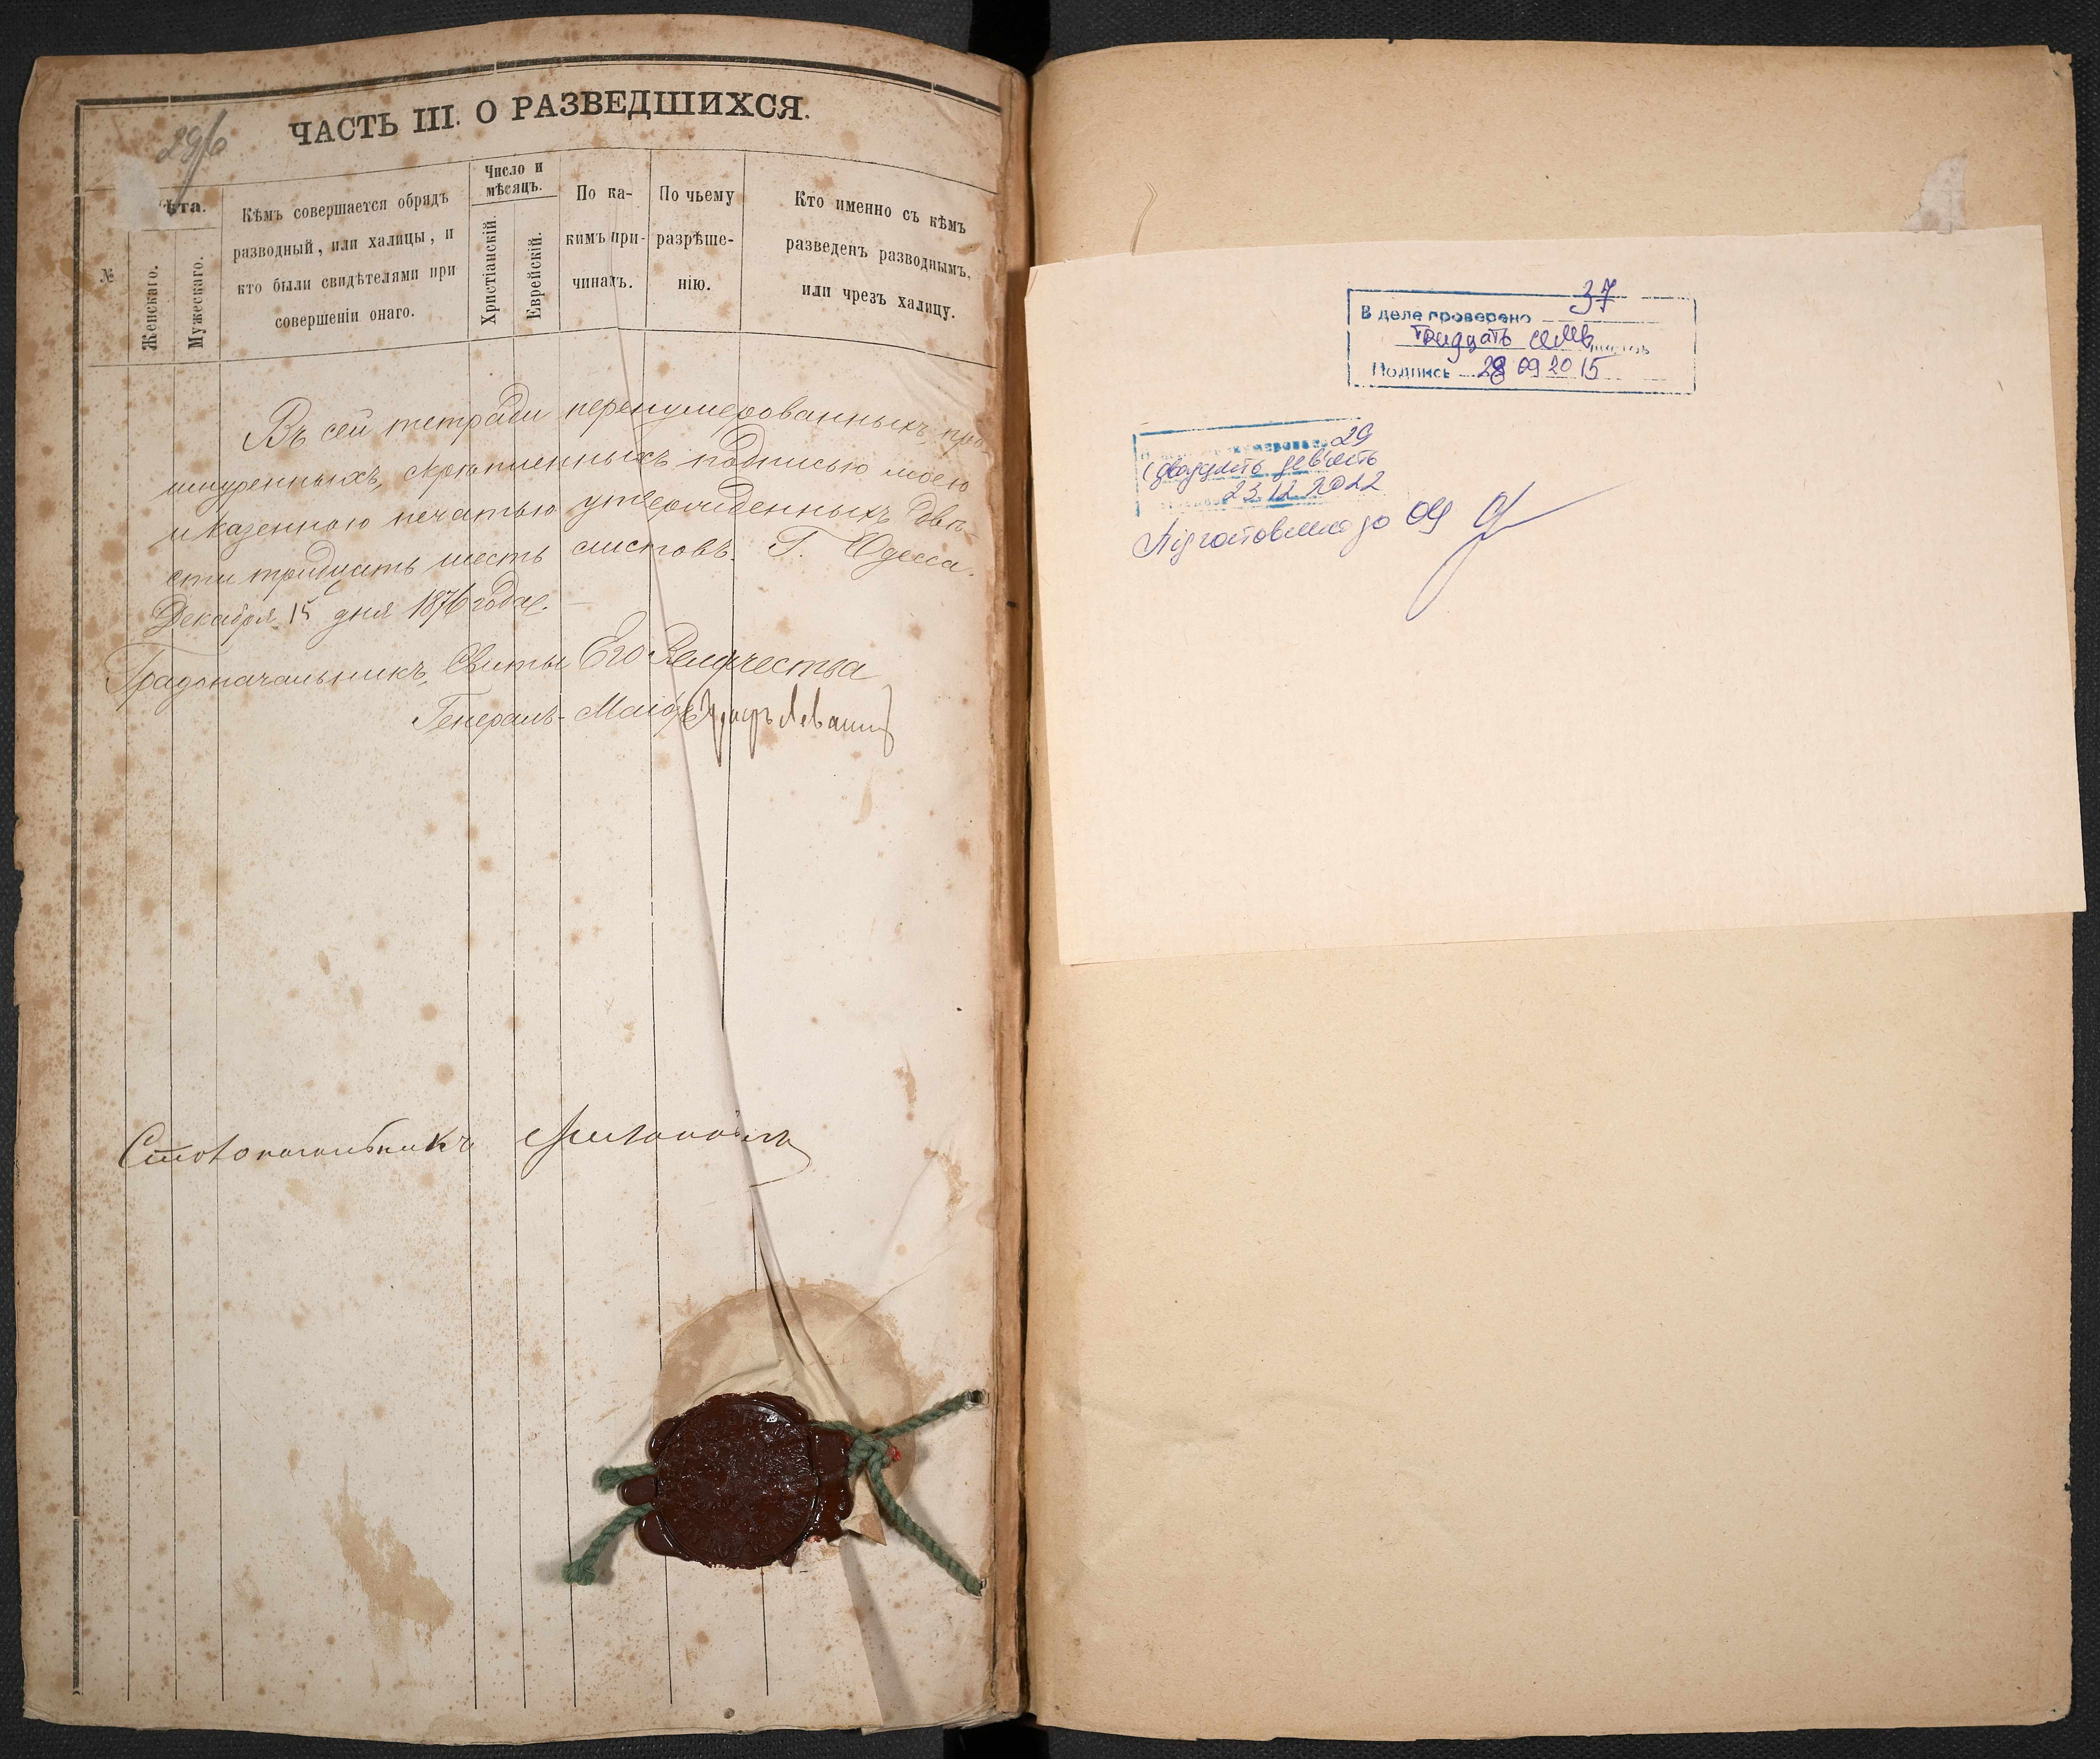 ЧАСТЬ III. О РАЗВЕДШИХСЯ.
29/б
№
ѣта.
Женскаго.
Мужескаго.
Кѣмъ совершается обрядъ
разводный, или халицы, и
кто были свидѣтелями при
совершеніи онаго.
Число и
мѣсяцъ.
Христіанскій.
Еврейскій.
По ка-
кимъ при-
чинамъ.
По чьему
разрѣше-
нію.
Кто именно съ кѣмъ
разведенъ разводнымъ,
или чрезъ халицу.
Въ сей тетради перенумерованныхъ, про
шнуренныхъ, скрѣпленныхъ подписью моею
и казенною печатью утвержденныхъ двѣ-
сти тридцать шесть листовъ. Г. Одесса.
Декабря 15 дня 1876 года.
Градоначальникъ, Свиты Его Величества
Генералъ-Маіоръ
Столоначальникъ
В деле проверено 37
тридцать семь листов
Подпись 28 09 2015
29
(двадцять дев'ять
23.12.2022
Підготовлено до